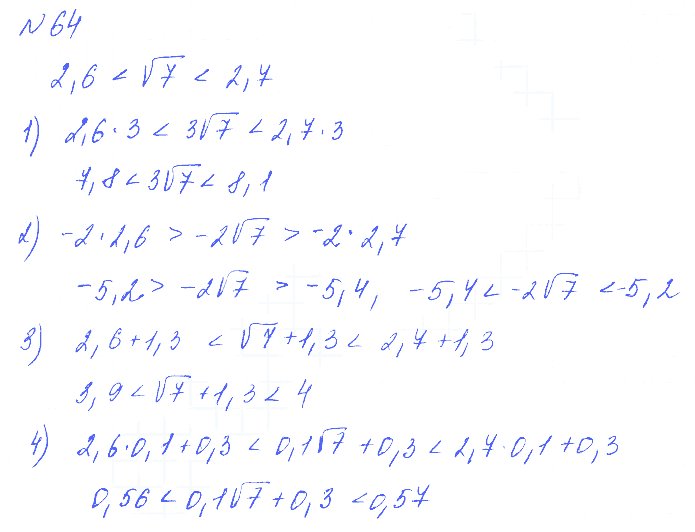 № 64
2,6 < √7 < 2,7
1) 2,6 · 3 < 3√7 < 2,7 · 3
7,8 < 3√7 < 8,1
2) -2 · 2,6 > -2√7 > -2 · 2,7
-5,2 > -2√7 > -5,4, -5,4 < -2√7 < -5,2
3) 2,6 + 1,3 < √7 + 1,3 < 2,7 + 1,3
3,9 < √7 + 1,3 < 4
4) 2,6 · 0,1 + 0,3 < 0,1√7 + 0,3 < 2,7 · 0,1 + 0,3
0,56 < 0,1√7 + 0,3 < 0,57